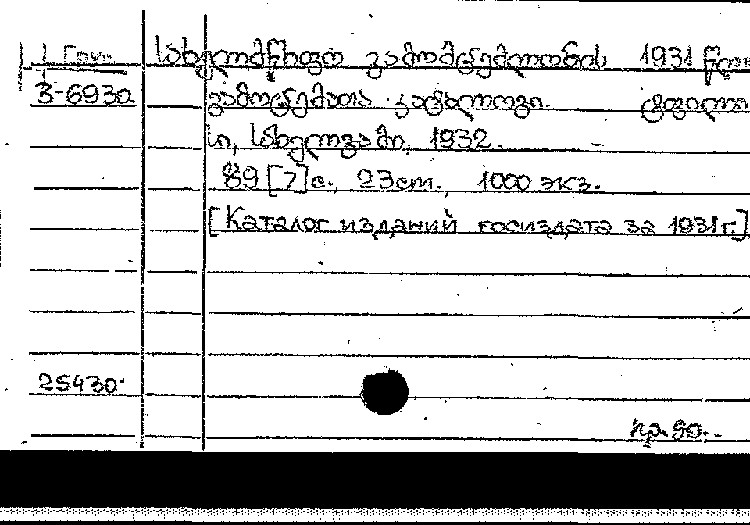 1 Груз. სახელმწიფო გამომცემლობის 1931 წლის
3-6930 გამოცემათა კატალოგი. ტფილი
სი, სახელგამი, 1932.
89 [7] გ., 23 cm., 1000 экз.
[Каталог изданий госиздата за 1931 г.]
25430.
кр. 90.-